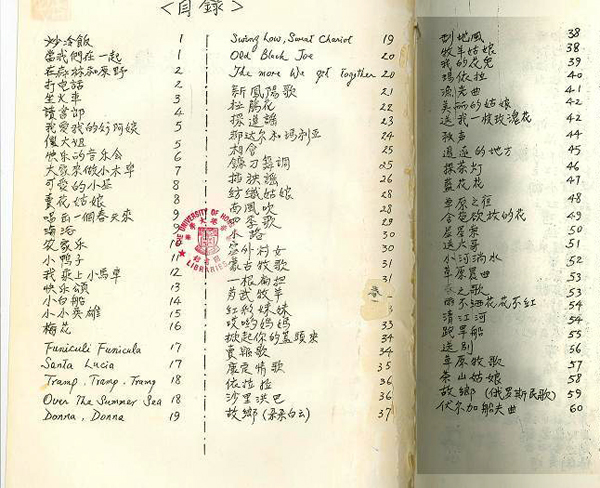 <目錄>
炒冷飯 1
當我們在一起 1
在森林和原野 2
打電話 2
坐火車 3
讀書郎 4
我愛我的好阿娘 5
傻大姐 5
快乐的音乐会 6
大家來做小木車 7
可愛的小姑 8
賣花姑娘 8
唱出一個春天來 9
海浴
农家乐
小鴨子 11
我乘上小馬車 12
快乐頌 13
小白船 14
小小英雄 15
梅花 16
Funiculi Funicula 17
Santa Lucia 17
Tramp, Tramp, Tramp 18
Over The Summer Sea 18
Donna, Donna 19
Swing Low, Sweet Chariot 19
Old Black Joe 20
The more We get Together 20
新鳳陽歌 21
杜鵑花 22
採道謠 23
那达尔和瑪利亚 24
相會 25
鐮刀舞調 25
插秧謠 26
紡織姑娘 28
西風吹 28
四季歌 29
水路 30
塞外村女 30
蒙古牧歌 31
一根扁担 31
苏武牧羊
紅彩妹妹
哎哟媽媽 33
掀起你的蓋頭來 34
賣報歌 34
康定情歌 35
依拉拉 36
沙里洪巴 36
故鄉(朵朵白云) 37
刮地風 38
牧羊姑娘 38
我的花兒 39
瑪依拉 40
流光曲 41
美丽的姑娘 42
送我一枝玫瑰花 42
秋声 44
遥遠的地方 45
探茶灯 46
蓝花花 47
草原之夜 48
含苞欲放的花 49
星星索 50
送大哥 51
小河淌水 52
草原晨曲 53
春之歌 53
雨不洒花花不紅 54
清江河 54
跑旱船 55
送别 56
草原牧歌 57
茶山姑娘 58
故鄉(俄罗斯民歌) 59
伏尔加船夫曲 60
THE UNIVERSITY OF HONG KONG
LIBRARIES